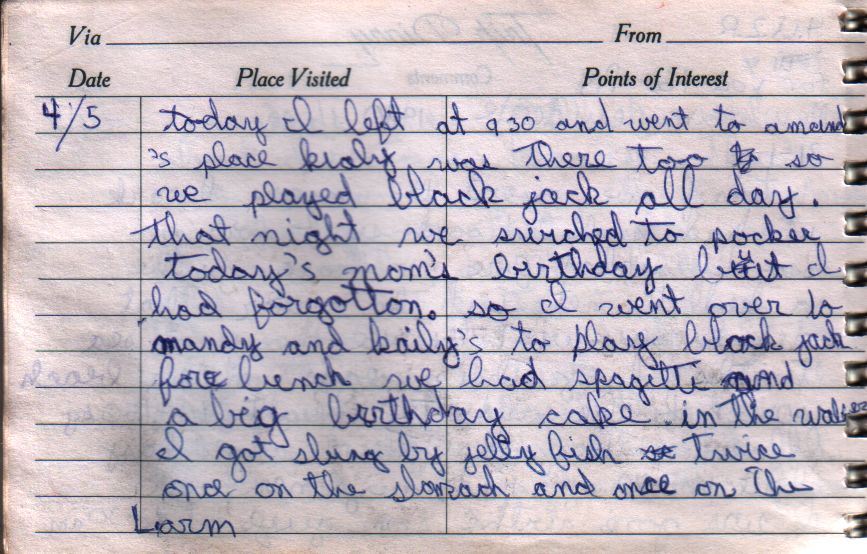 Via From
Date Place Visited Points of Interest
4/5 today I left at 930 and went to amand
's place was there too so
we played black jack all day.
That night we to
today's mom's birthday but I
had forgotton. so I went over to
mandy and kaily's to play black jack
for lunch we had spagetti and
a big birthday cake. in the water
I got stung by jelly fish twice
once on the stomach and once on the
arm